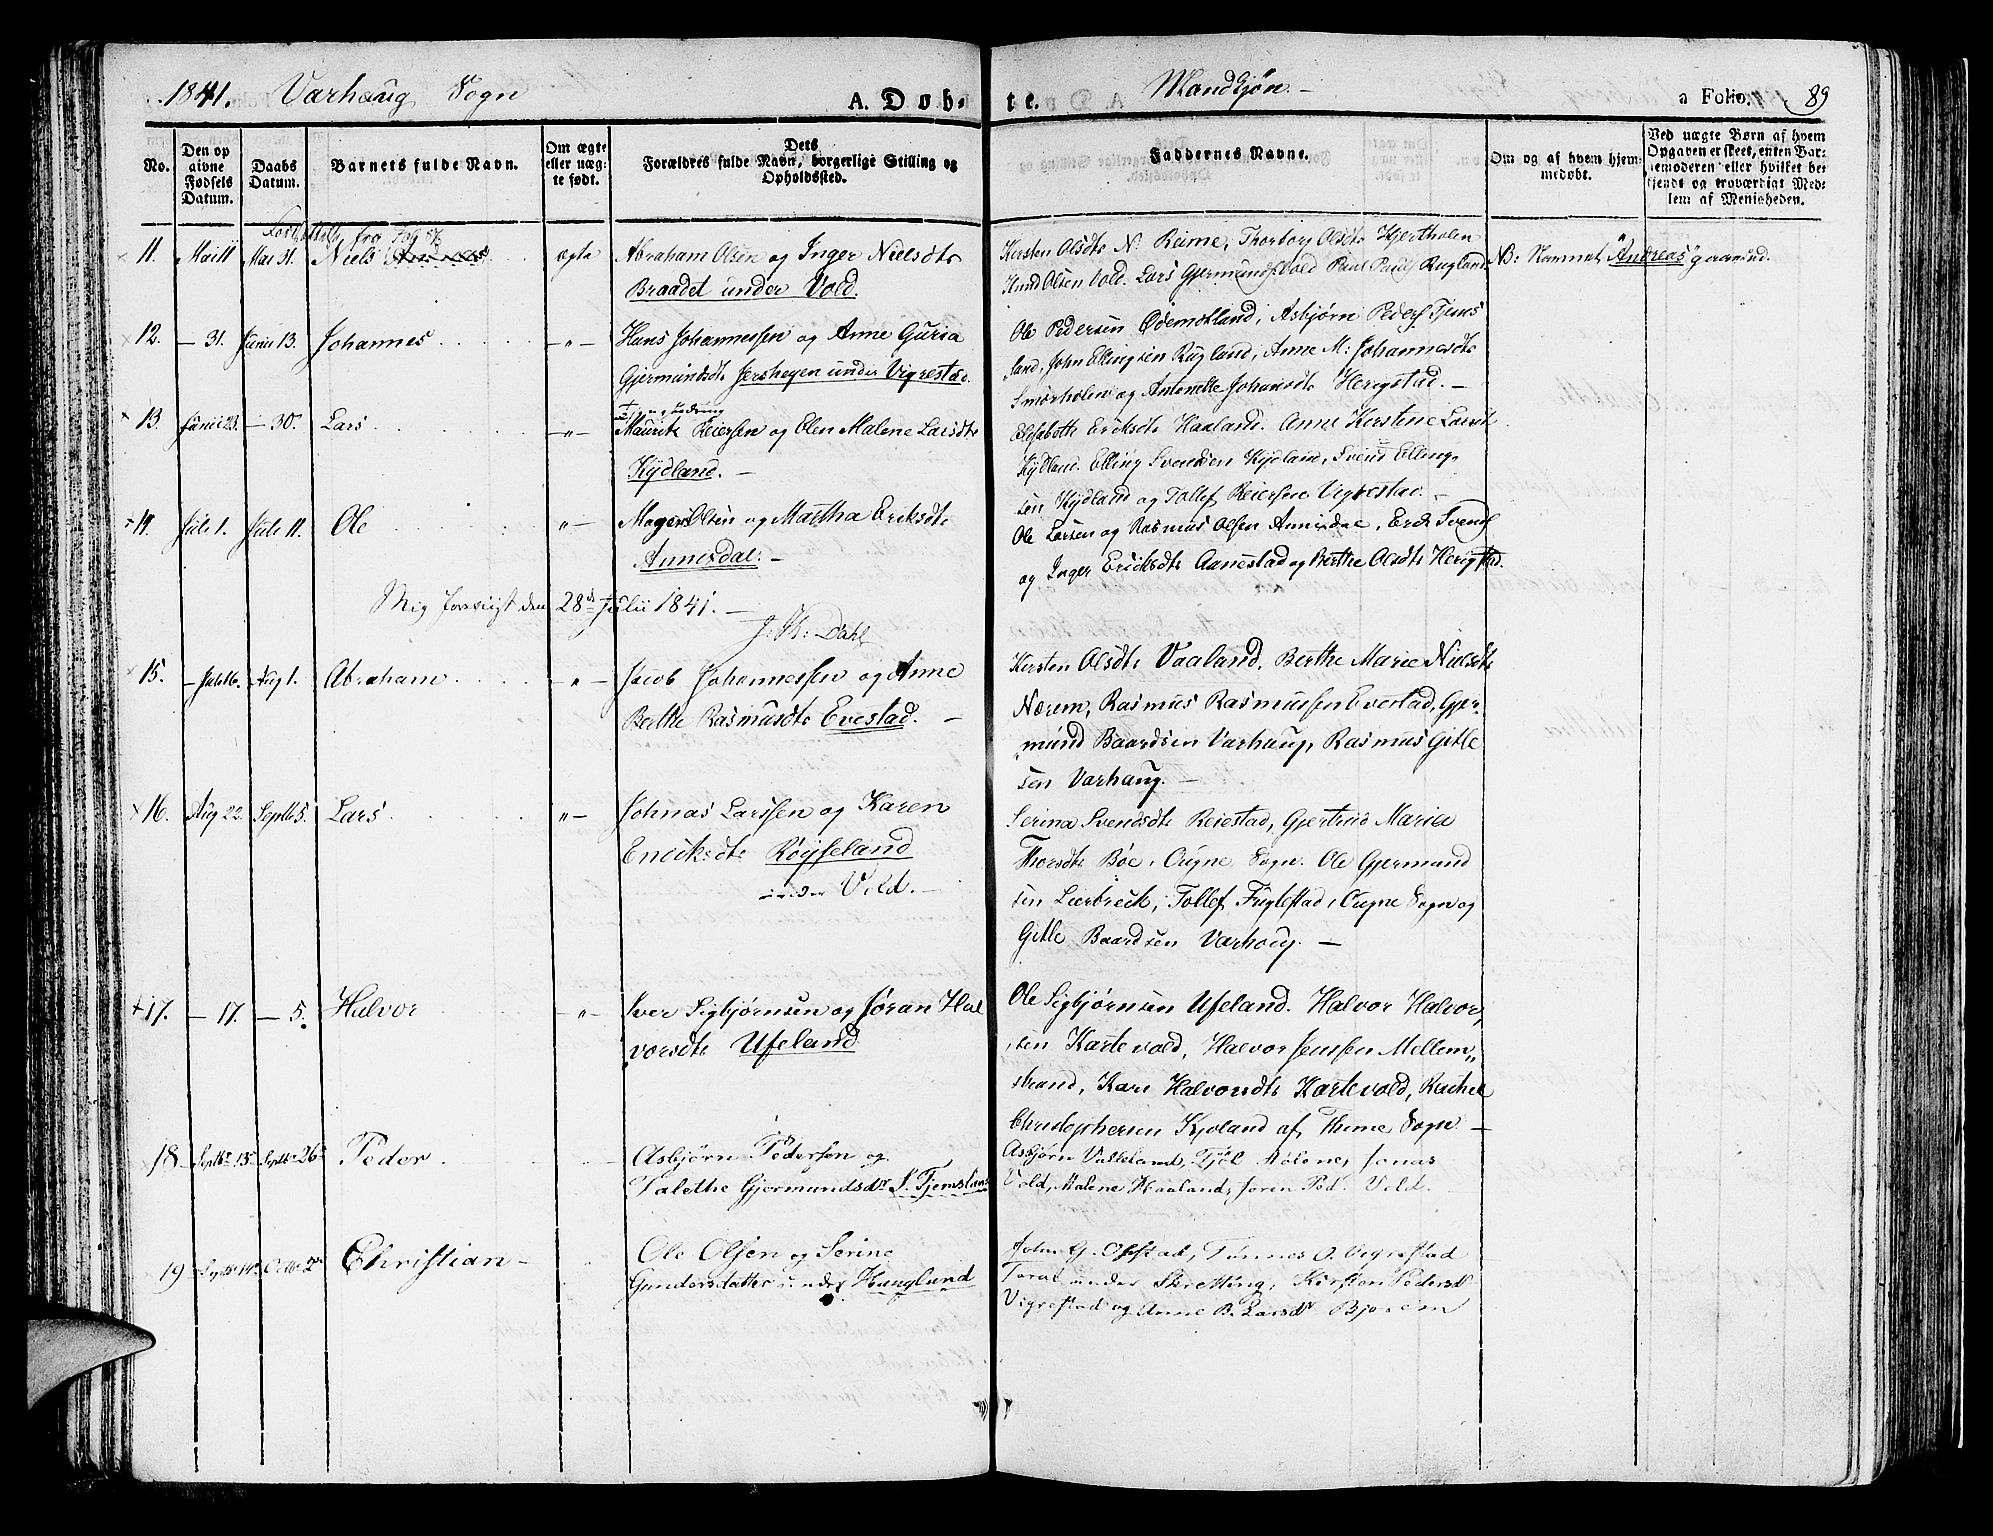 1841. Varhaug Sogn
A. Døb-
te.
Mandkjøn.
a Folio.
89
No.
Den op
givne
Fødsels
Datum.
Daabs
Datum.
Barnets fulde Navn.
Om ægte
eller uæg-
te født.
Dets
Forældres fulde Navn, borgerlige Stilling og
Opholdssted.
Faddernes Navne.
Om og af hvem hjem-
medøbt.
Ved uægte Børn af hvem
Opgaven er skeet, enten Bar-
nemoderen eller hvilket be-
kjendt og troværdigt Med-
lem af Menigheden.
fra Fol 87
11. Mai 11 Mai 31. Niels Andreas ægte Abraham Olsen og Inger Nielsdtr
Braadet under Vold.
Kirsten Olsdtr N. Reime, Thorborg Olsdtr Hjertholen
Knud Olsen Vold. Lars Gjermunds. Vold Paul Pauls Rugland.
NB: Navnet "Andreas"
12. — 31. Junii 13. Johannes —"— Hans Johannessen og Anne Guria
Gjermundsdtr Jersheyen under Vigrestad.
Ole Pedersen Ødemotland, Asbjørn Peders Tjems
land, John Ellingsen Rugland, Anne M: Johannesdtr
Smørholen og Antonette Johansdtr Herigstad. —
13. Junii 23. — 30. Lars —"— Mauritz Reiersen og Elen Malene Larsdtr
Kydland. —
Elisabeth Eriksdtr Haaland. Anne Kerstine Larsdtr
Kydland. Elling Svendsen Kydland, Svend Elling-
sen Kydland og Tollef Reiersen Vigrestad. —
14. Julii 1. Julii 11. Ole "— Magne Olsen og Martha Eriksdtr
Annisdal. —
Ole Larsen og Rasmus Olsen Annisdal, Erik Svends
og Inger Ericksdtr Aanestad og Berthe Olsdtr Herigstad.
Mig foreviist den 28de Julii 1841. —
J: K: Dahl
15. — Julii 16. Aug 1. Abraham "— Jacob Johannessen og Anne
Berthe Rasmusdtr Evestad. —
Kirsten Olsdtr Vaaland. Berthe Marie Nielsdtr
Nærem, Rasmus Rasmussen Evestad, Gjer-
mund Baardsen Varhaug, Rasmus Gitle
sen Varhaug. —
16. Aug 22. Septb 5. Lars "— Johnas Larssen og Karen
Ericksdtr Røyseland
under Vold. —
Serina Svendsdtr Reiestad, Gjertrud Maria
Thorsdtr Bøe, Ougne Sogn. Ole Gjermund
sen Lierbreck, Tollef Fuglestad, Ougne Sogn og
Gitle Baardsen Varhoug. —
17. — 17. — 5. Halvor —"— Iver Sigbjørnsen og Jøran Hal
vorsdtr Ufeland
Ole Sigbjørnsen Ufeland. Halvor Halvor,
sen Kartevold, Halvor Jenssen Mellem
strand, Kari Halvorsdtr Kartevold, Rachel
Christophersen Kjoland af Thime Sogn —
18 Septbr 15 Septbr 26 Peder Asbjørn Pedersen og
Talethe Gjermundsdtr S. Tjemsland
Asbjørn Valleland, Jonas
Vold, Malene Haaland, Jøren Ped. Vold.
19 Christian — Ole Olsen og Serine
Gundersdatter under Hauglund
John G. Opstad, Tønnes O. Vigrestad
under Skretting, Kirsten Pedersd
Vigrestad og Anne B. Larsdtr Bjorem